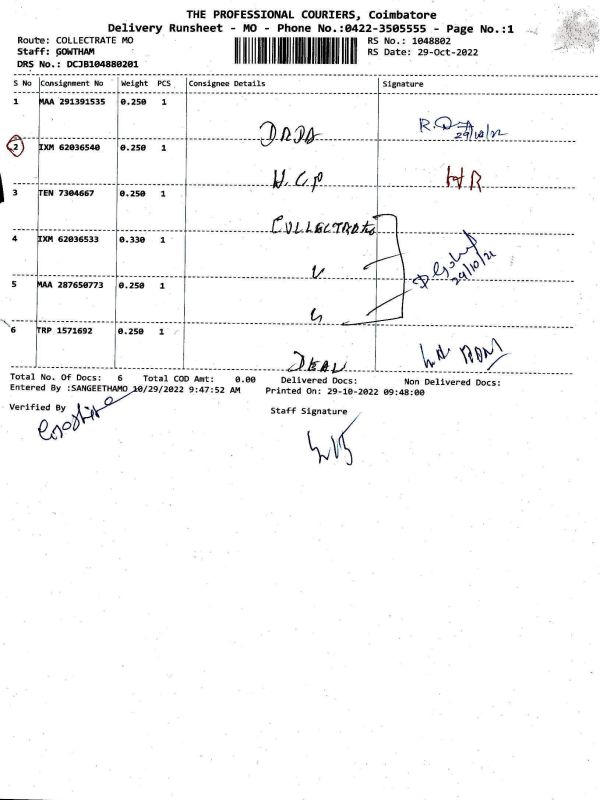 THE PROFESSIONAL COURIERS, Coimbatore
Delivery Runsheet - MO - Phone No.:0422-3505555 - Page No.:1
Route: COLLECTRATE MO RS No.: 1048802
Staff: GOWTHAM RS Date: 29-Oct-2022
DRS No.: DCJB104880201
S No Consignment No Weight PCS Consignee Details Signature
1 MAA 291391535 0.250 1
29/10/22
2 IXM 62036540 0.250 1
H.C.P HR
3 TEN 7304667 0.250 1
4 IXM 62036533 0.330 1
29/10/22
5 MAA 287650773 0.250 1
6 TRP 1571692 0.250 1
Total No. Of Docs: 6 Total COD Amt: 0.00 Delivered Docs: Non Delivered Docs:
Entered By :SANGEETHAMO 10/29/2022 9:47:52 AM Printed On: 29-10-2022 09:48:00
Verified By Staff Signature